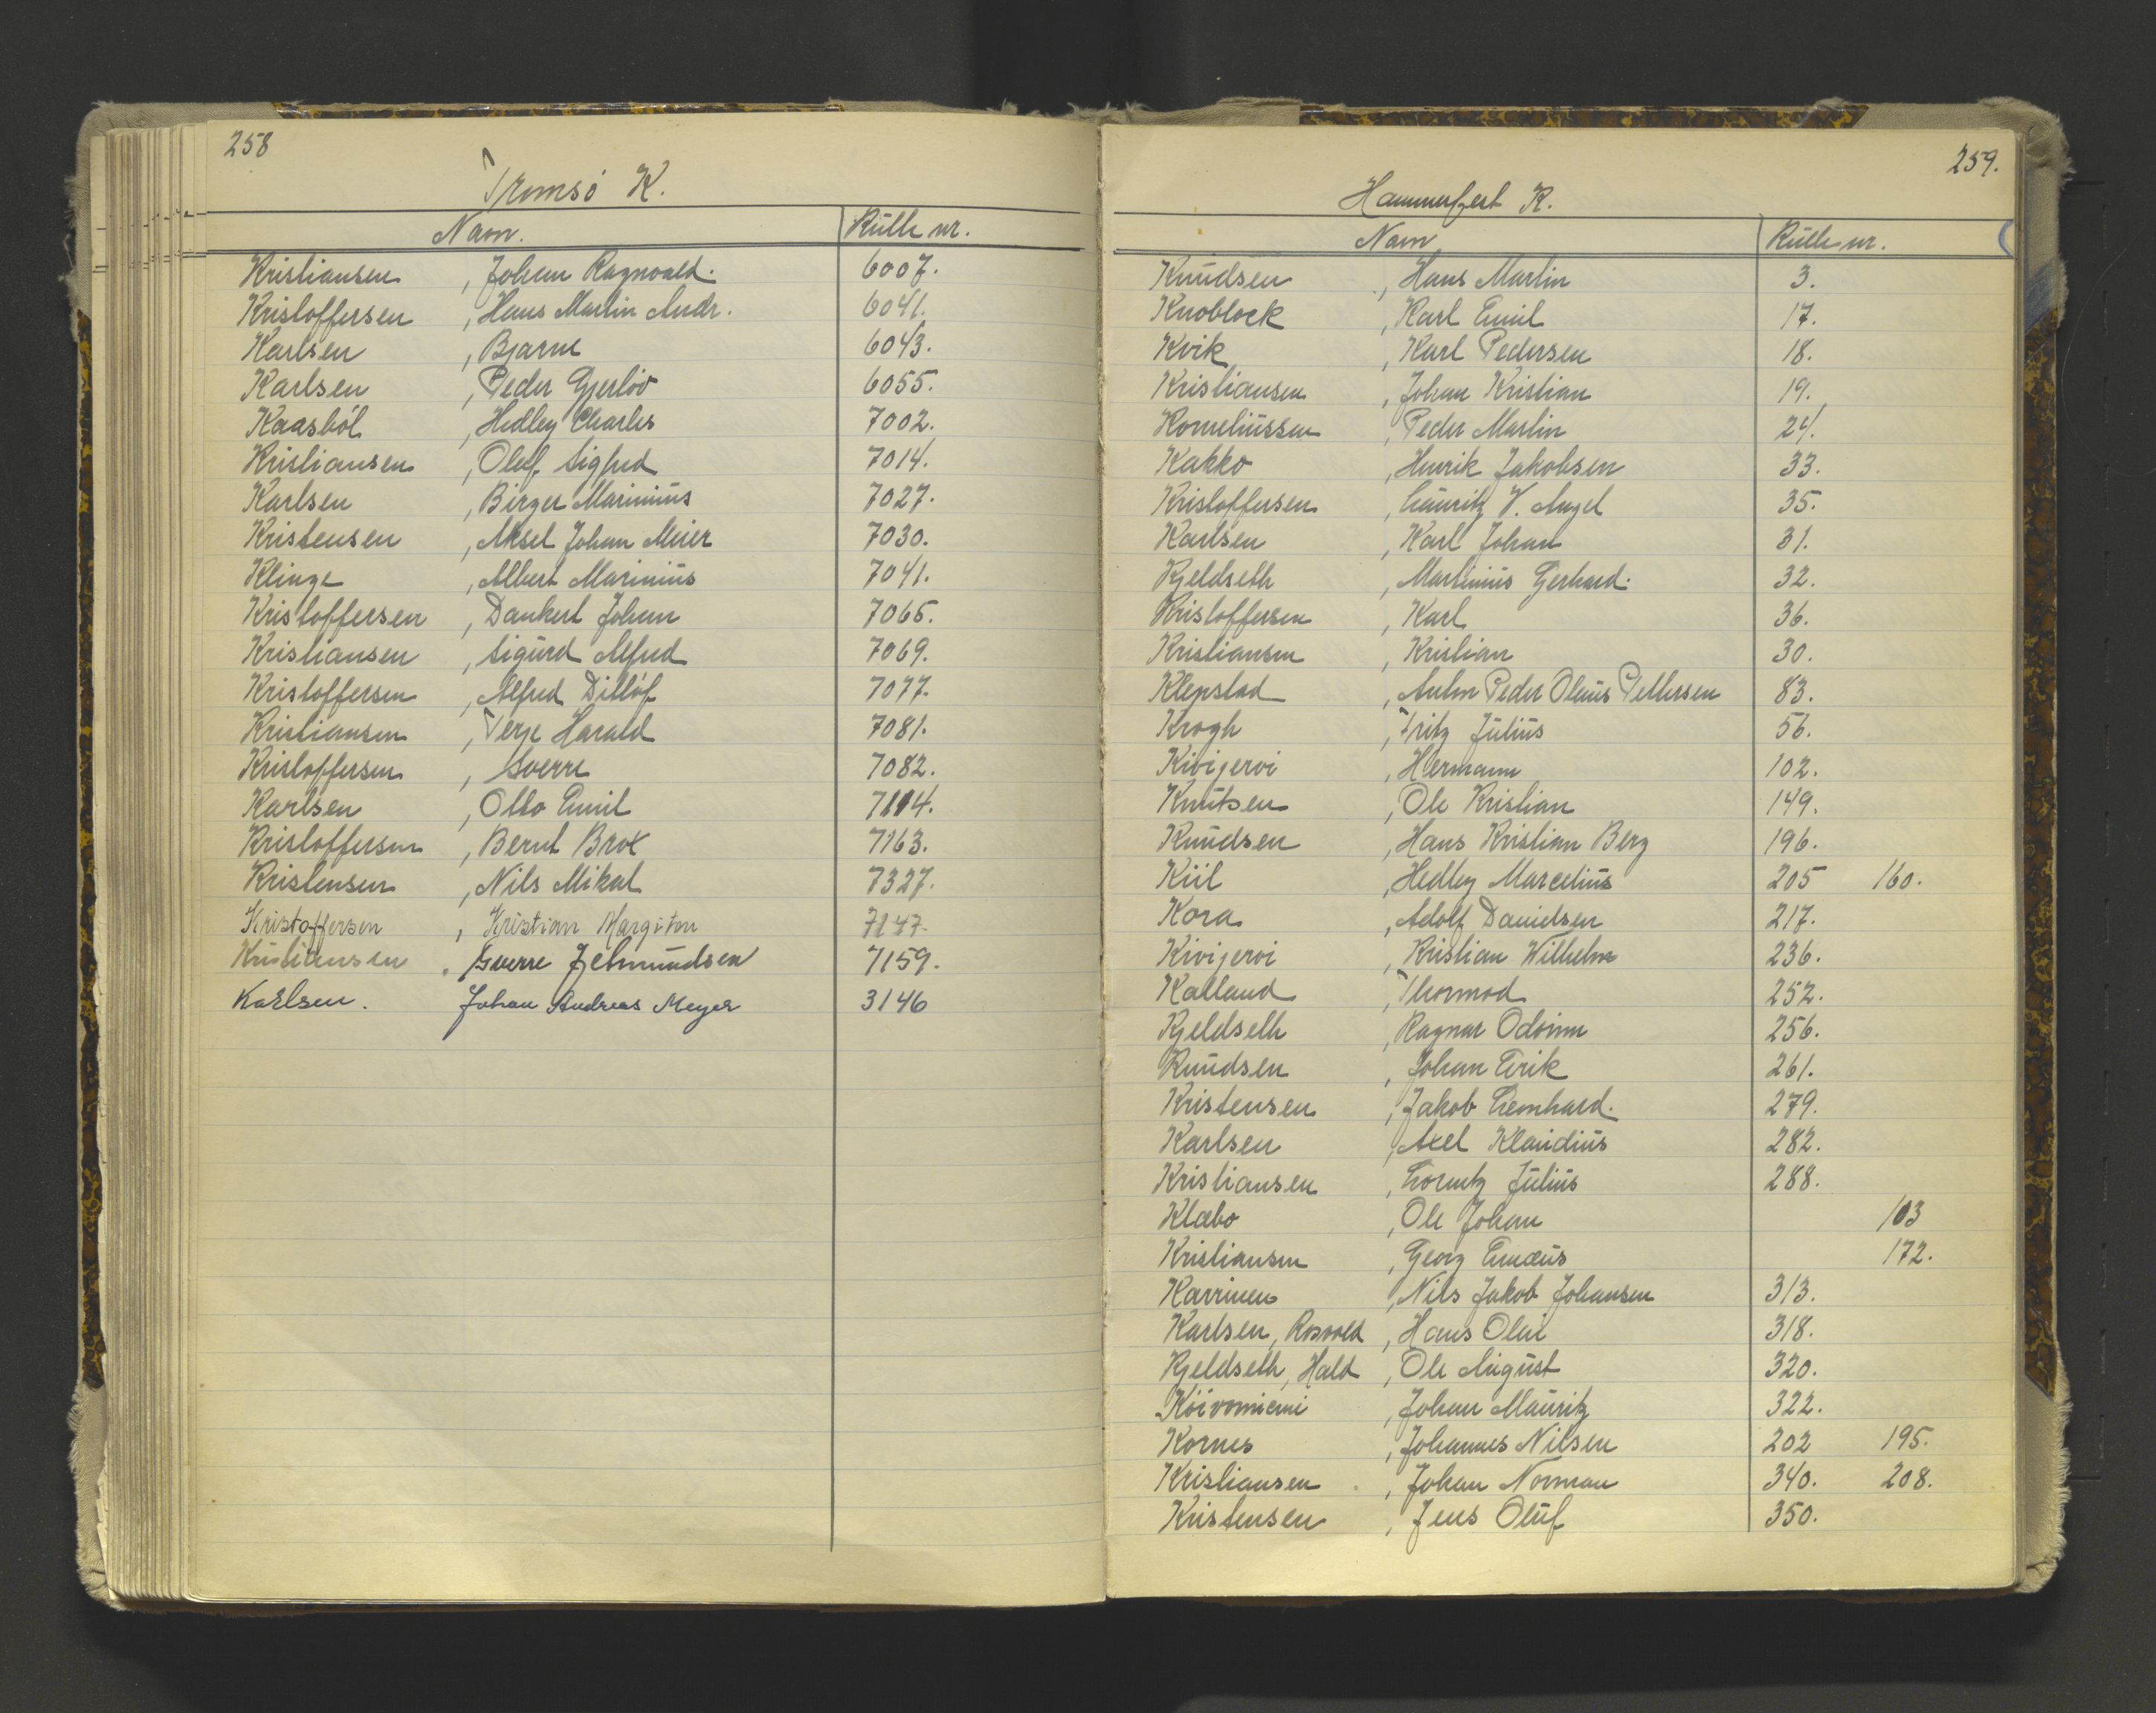 258
Tromsø K.
Navn. Rulle nr.
Kristiansen , Johan Ragnvald. 6007.
Kristoffersen , Hans Martin Andr. 6041.
Karlsen , Bjarne 6043.
Karlsen , Peder Gjerløv 6055.
Kaasbøl , Hedley Charles 7002.
Kristiansen , Oluf Sigfred 7014.
Karlsen , Birger Marinius 7027.
Kristensen , Aksel Johan Meier 7030.
Klinge , Albert Marinius 7041.
Kristoffersen , Dankert Johan 7065.
Kristiansen , Sigurd Alfred 7069.
Kristoffersen , Alfred Ditløf 7077.
Kristiansen , Terje Harald 7081.
Kristoffersen , Sverre 7082.
Karlsen , Otto Emil 7114.
Kristoffersen , Bernt Brox 7163.
Kristensen , Nils Mikal 7327.
Kristoffersen , Kristian Margiton 7147.
Kristiansen , Sverre Jelmundsen 7159.
Karlsen. Johan Andreas Meyer 3146
259.
Hammerfest K.
Navn Rulle nr.
Knudsen , Hans Martin 3.
Knoblock , Karl Emil 17.
Kvik , Karl Pedersen 18.
Kristiansen , Johan Kristian 19.
Korneliussen , Peder Martin 24.
Kakko , Henrik Jakobsen 33.
Kristoffersen , Lauritz V. Angel 35.
Karlsen , Karl Johan 31.
Kjeldseth , Martinius Gerhard. 32.
Kristoffersen , Karl 36.
Kristiansen , Kristian 30.
Klepstad , Anton Peder Olaus Pettersen 83.
Krogh , Fritz Julius 56.
Kivijervi , Hermann 102.
Knutsen , Ole Kristian 149.
Knudsen , Hans Kristian Berg 196.
Kiil , Hedley Marcelius 205 160.
Kora , Adolf Danielsen 217.
Kivijervi , Kristian Wilhelm 236.
Kalland , Thormod 252.
Kjeldseth , Ragnar Odvinn 256.
Knudsen , Johan Eirik 261.
Kristensen , Jakob Leonhard. 279.
Karlsen , Axel Klaudius 282.
Kristiansen , Lorentz Julius 288.
Klæbo , Ole Johan 103
Kristiansen , Georg Emæus 172.
Karrinen , Nils Jakob Johansen 313.
Karlsen, Rosvold , Hans Olai 318.
Kjeldseth, Hald , Ole August 320.
Köivoniemi , Johan Mauritz 322.
Kornes , Johannes Nilsen 202 195.
Kristiansen , Johan Norman 340. 208.
Kristensen , Jens Oluf 350.